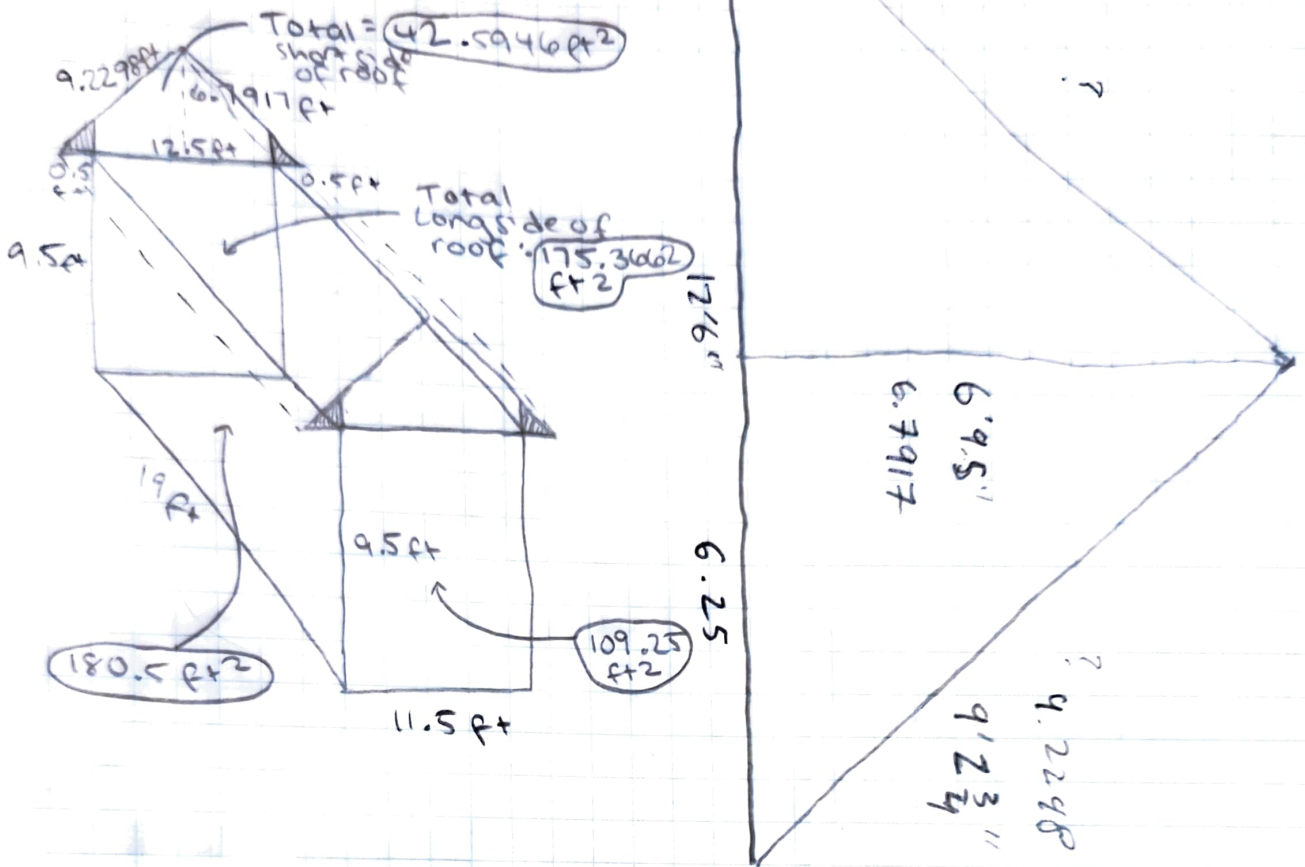 Total = 42.5946ft²
short side
of roof
9.2298ft
6.7917
ft
12.5ft
0.5
ft
0.5ft
Total
Longside of
roof :
175.3662
ft2
9.5ft
19
ft
9.5ft
180.5 ft²
109.25
ft2
11.5 ft
?
12'6"
6'9.5"
6.7917
6.25
?
9.2298
9'2 3/4"